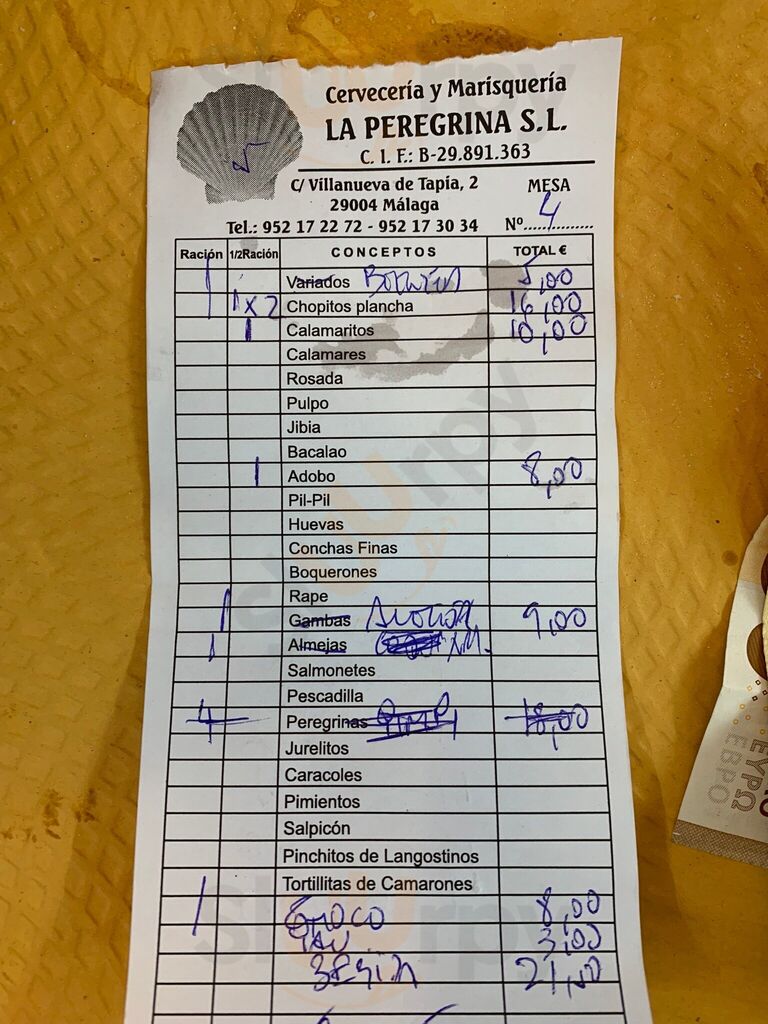 Cervecería y Marisquería
LA PEREGRINA S.L.
C. I. F.: B-29.891.363
C/ Villanueva de Tapia, 2
29004 Málaga
Tel.: 952 17 22 72 - 952 17 30 34
MESA
Nº 4
Ración 1/2Ración CONCEPTOS TOTAL €
1 Variados 5,00
1 x 2 Chopitos plancha 16,00
1 Calamaritos 10,00
Calamares
Rosada
Pulpo
Jibia
Bacalao
1 Adobo 8,00
Pil-Pil
Huevas
Conchas Finas
Boquerones
Rape
1 Gambas 9,00
1 Almejas
Salmonetes
Pescadilla
4 Peregrinas 18,00
Jurelitos
Caracoles
Pimientos
Salpicón
Pinchitos de Langostinos
Tortillitas de Camarones
1 8,00
PAN 3,00
BEBIDA 21,00
ΕΥΡΩ
ЕВРО